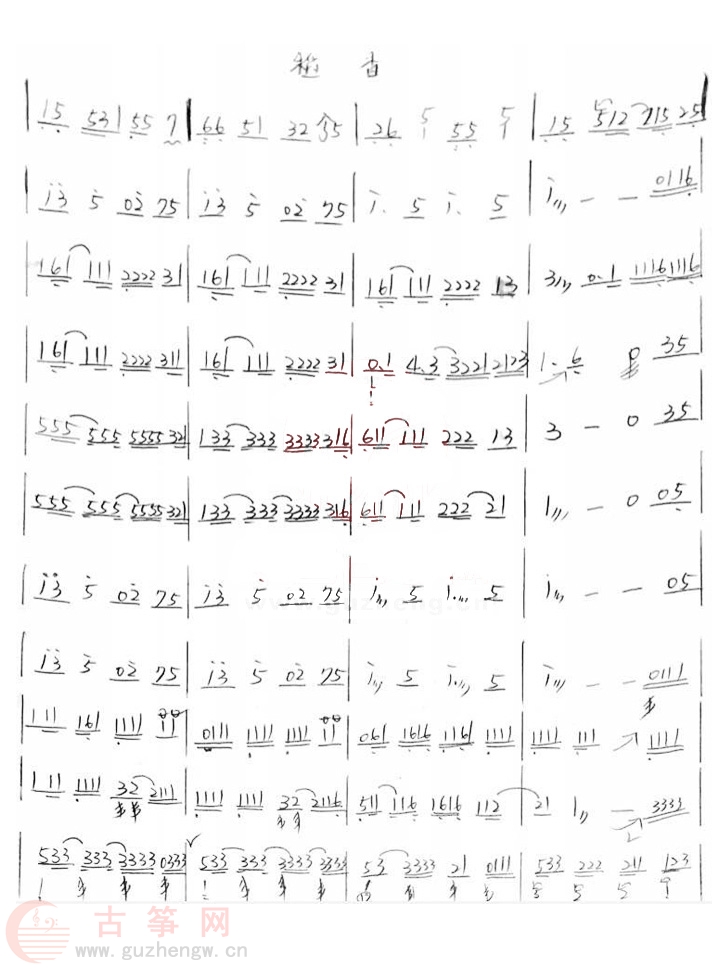 稻香
| 15 53 | 55 7 | 66 51 32 35 | 26 5 55 5 | 15 512 715 25 |
| i3 5 02 75 | i3 5 02 75 | i. 5 i. 5 | i,,, - - 0116 |
| 161 111 2222 31 | 161 111 2222 31 | 161 111 2222 13 | 3,,, 0.1 1116 1116 |
| 161 111 2222 311 | 161 111 2222 31 | 0.1 4.3 3221 2123 | 1. 6 0 35 |
| 555 555 5555 321 | 133 333 3333 316 | 611 111 222 13 | 3 - 0 35 |
| 555 555 5555 321 | 133 333 3333 316 | 611 111 222 21 | 1,,, - 0 05 |
| i3 5 02 75 | i3 5 02 75 | i,,, 5 i.,,, 5 | i,,, - - 05 |
| i3 5 02 75 | i3 5 02 75 | i,,, 5 i.,, 5 | i,,, - - 0111 |
| 111 161 1111 11 | 0111 1111 1111 11 | 061 1616 1161 1111 | 1111 111 1111 |
| 111 1111 32 2111 | 1111 1111 32 2116 | 511 116 1616 112 | 21 1,, - 3333 |
| 533 333 3333 0333 | 533 333 3333 3333 | 53 3333 21 0111 | 533 222 211 123 |
古筝网
www.guzhengw.cn